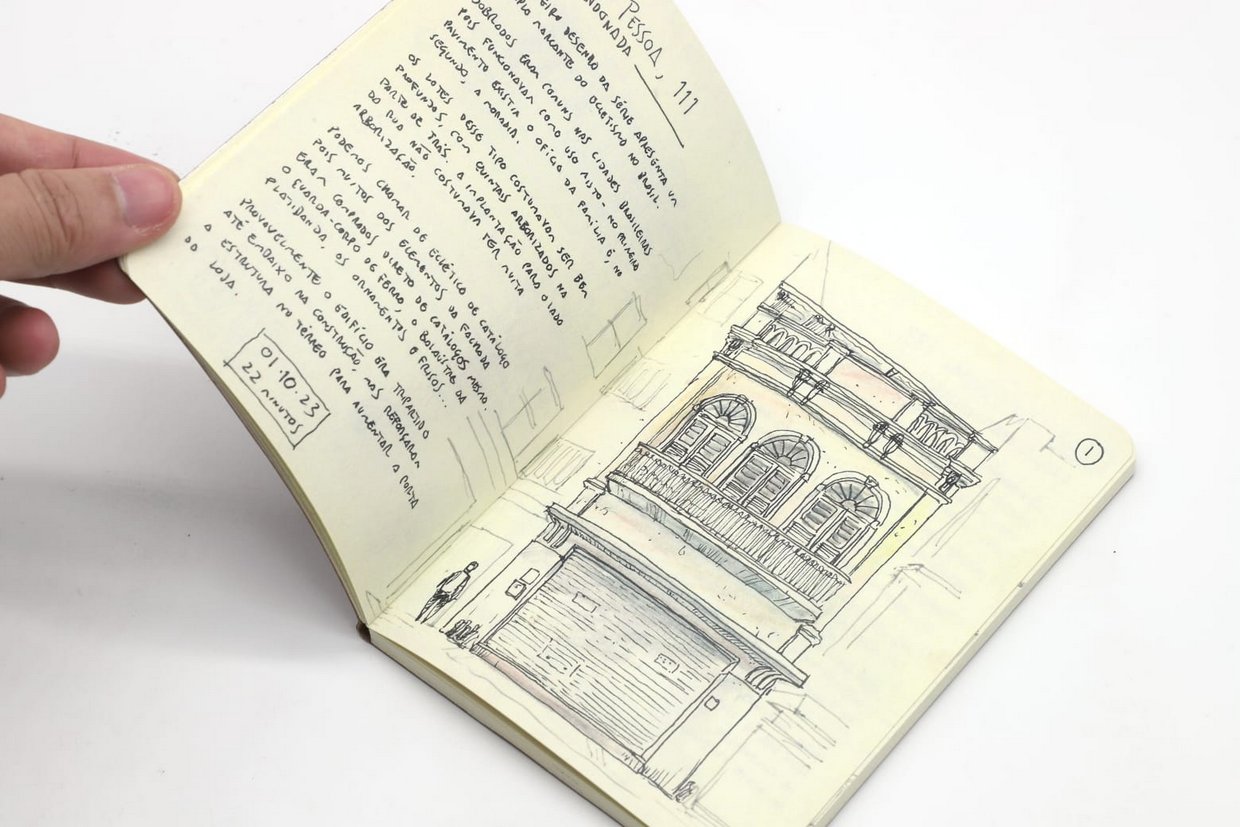 PESSOA, 111
DESENHO DA SÉRIE APRESENTA UM
MARCANTE DO ECLETISMO NO BRASIL.
SOBRADOS ERAM COMUNS NAS CIDADES BRASILEIRAS
POIS FUNCIONAVAM COMO USO MISTO - NO PRIMEIRO
PAVIMENTO EXISTIA O OFÍCIO DA FAMÍLIA E, NO
SEGUNDO, A MORADIA.
OS LOTES DESSE TIPO COSTUMAVAM SER BEM
PROFUNDOS, COM QUINTAIS ARBORIZADOS NA
PARTE DE TRÁS. A IMPLANTAÇÃO PARA O LADO
DA RUA NÃO COSTUMAVA TER MUITA
ARBORIZAÇÃO.
PODEMOS CHAMAR DE ECLÉTICO DE CATÁLOGO
POIS MUITOS DOS ELEMENTOS DA FACHADA
ERAM COMPRADOS DIRETO DE CATÁLOGOS MESMO.
O GUARDA-CORPO DE FERRO, O BALAÚSTRE DA
PLATIBANDA, OS ORNAMENTOS E FRISOS...
PROVAVELMENTE O EDIFÍCIO ERA TRIPARTIDO
ATÉ EMBAIXO NA CONSTRUÇÃO, MAS REFORÇARAM
A ESTRUTURA NO TÉRREO PARA AUMENTAR A PORTA
DA LOJA.
01.10.23
22 MINUTOS
1